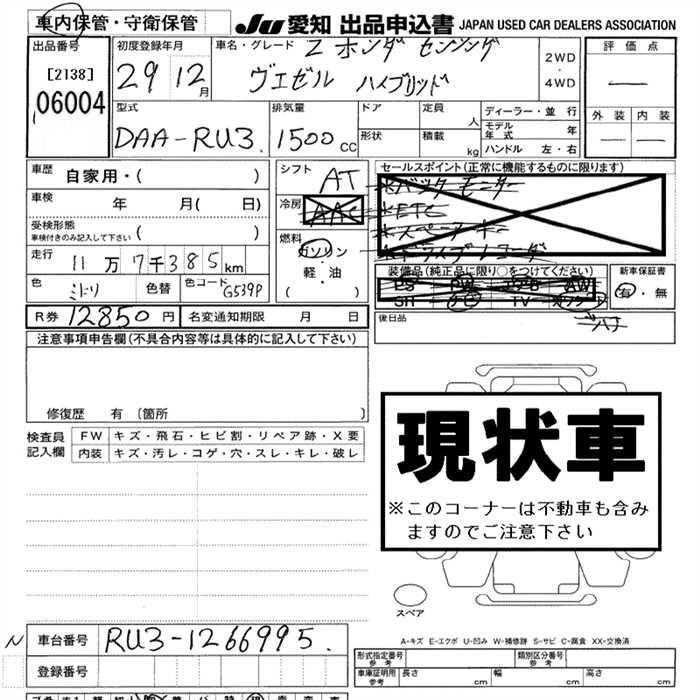 車内保管・守衛保管
JU 愛知 出品申込書 JAPAN USED CAR DEALERS ASSOCIATION
出品番号
[2138]
06004
初度登録年月
29 12月
車名・グレード Z ホンダ センシング
ヴェゼル ハイブリッド
2WD
・
4WD
評価点
外装 内装
型式
DAA-RU3
排気量
1500 CC
ドア
形状
定員 人
積載 kg
ディーラー・並行
モデル年式 年
ハンドル 左・右
車歴 自家用・( )
車検 年 月( 日)
受検形態
車検付きのみ記入して下さい ( )
走行 11万7千385km
色 ミドリ 色替 色コード G539P
R券 12850円 名変通知期限 月 日
シフト AT
冷房 AAC
燃料 ガソリン・軽・油
( )
セールスポイント(正常に機能するものに限ります)
*バックモニター
*ETC
*スペアキー
*ドライブレコーダ
装備品(純正品に限り○をつけてください)
PS PW エアB AW
SR TV
新車保証書
有・無
後日品
注意事項申告欄(不具合内容等は具体的に記入して下さい)
修復歴 有 〔箇所
検査員記入欄
FW キズ・飛石・ヒビ割・リペア跡・X要
内装 キズ・汚レ・コゲ・穴・スレ・キレ・破レ
現状車
※このコーナーは不動車も含み
ますのでご注意下さい
スペア
A-キズ E-エクボ U-凹み W-補修跡 S-サビ C-腐食 XX-交換済
N 車台番号 RU3-1266995
登録番号
形式指定番号 参考
類別区分番号 参考
車庫証明用 参考 長さ cm 幅 cm 高さ cm